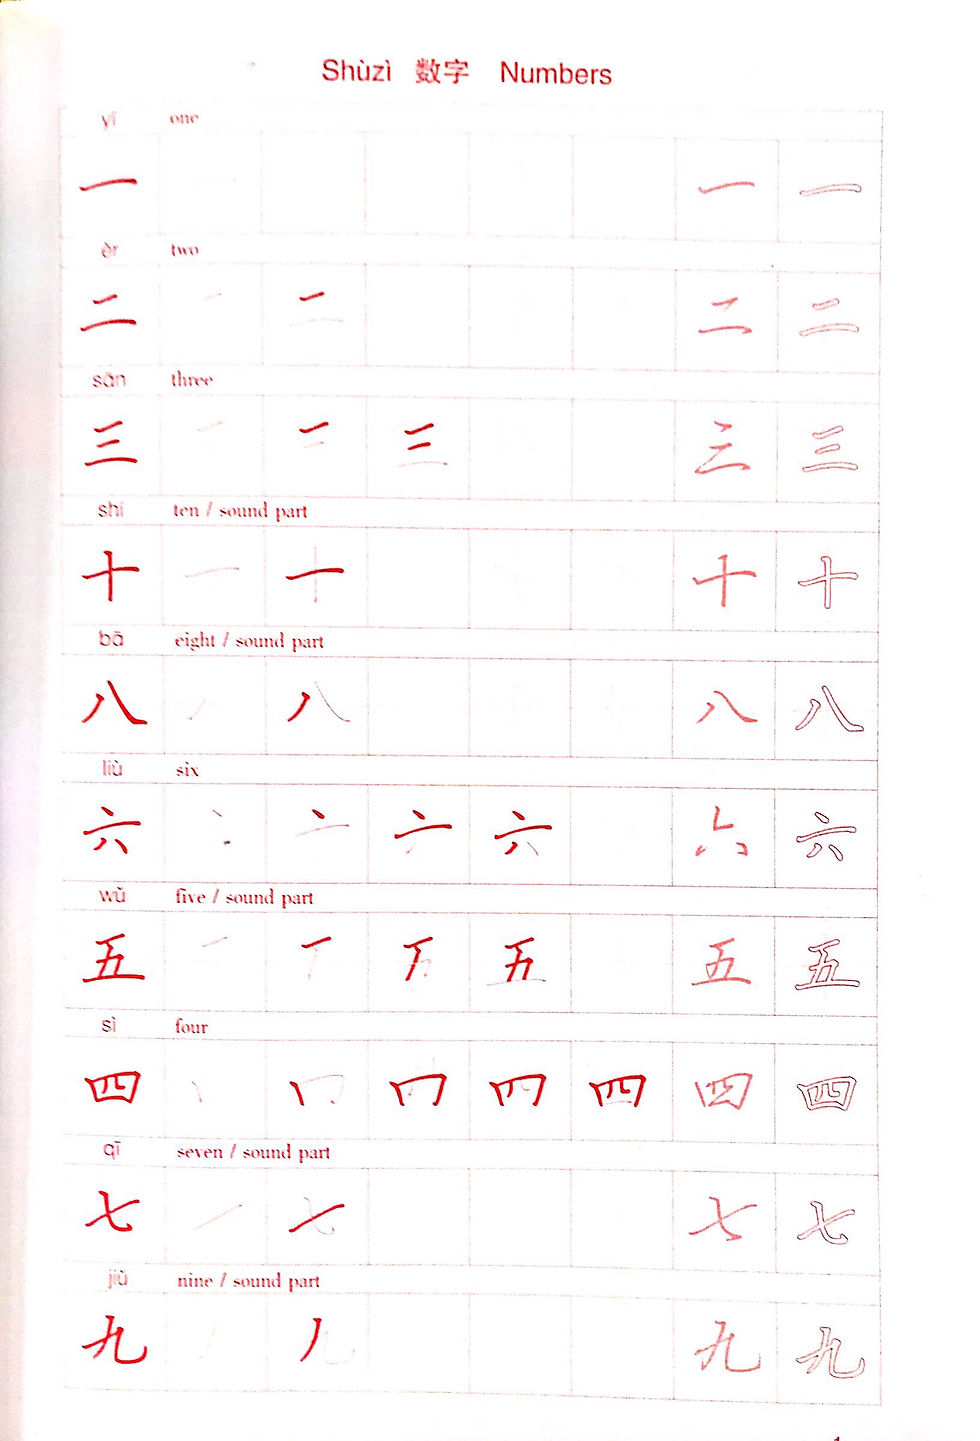 Shùzì 数字 Numbers
yī one
一 一 一
èr two
二 二 二 二
sān three
三 三 三 三 三
shí ten / sound part
十 一 十 十 十
bā eight / sound part
八 八 八 八
liù six
六 六 六 六
wǔ five / sound part
五 五 五 五
sì four
四 四 四 四
qī seven / sound part
七 七 七 七
jiǔ nine / sound part
九 九 九 九